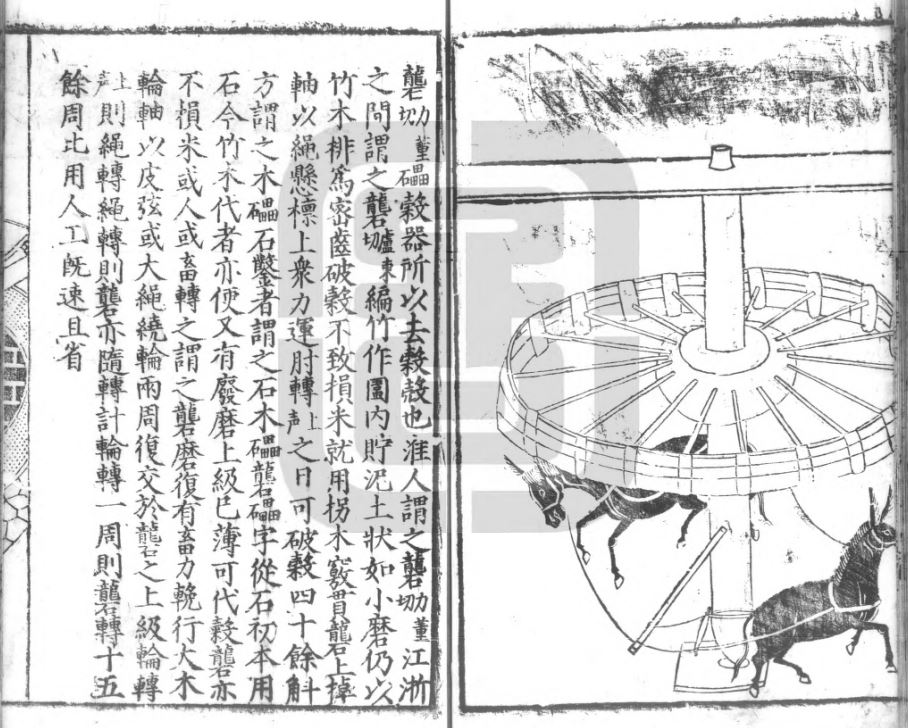 礱㘯䃀礧穀器所以去穀殼也淮人謂之礱㘯䃀江浙
之間謂之礱墟東編竹作圍內貯泥土狀如小磨仍以
竹木排爲密齒破穀不致損米就用拐木竅貫礱上掉
軸以繩懸檁上衆力運肘轉上声之日可破穀四十餘斛
方謂之木礧石鑿者謂之石木礧礱礧字從石初本用
石今竹木代者亦便又有廢磨上級已薄可代穀礱亦
不損米或人或畜轉之謂之礱磨復有畜力輓行大木
輪軸以皮弦或大繩繞輪兩周復交於礱之上級輪轉
上声則繩轉繩轉則礱亦隨轉計輪轉一周則礱轉十五
餘周比用人工既速且省